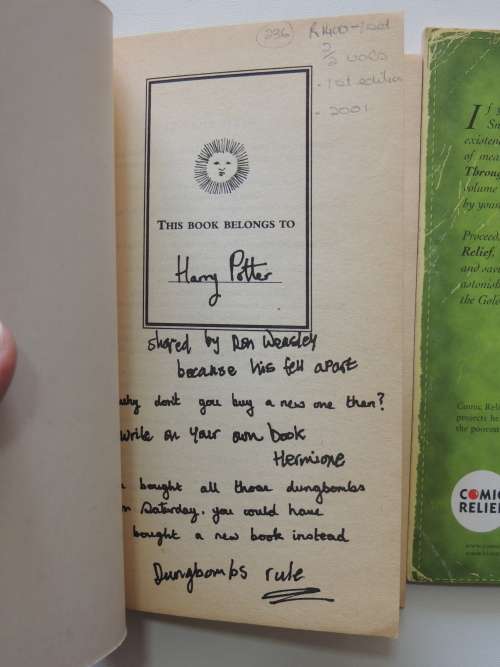 (236) R1400-1501
2/2 vols
- 1st edition
- 2001
THIS BOOK BELONGS TO
Harry Potter
shared by Ron Weasley
because his fell apart
why don't you buy a new one then?
write on your own book
Hermione
bought all those dungbombs
on Saturday. you could have
bought a new book instead
Dungbombs rule
If
Sn
existen
of mea
Throug
volume
by youn
Proceed
Relief,
and save
astonish
the Gole
Comic Reli
projects he
the poorest
COMIC
RELIEF